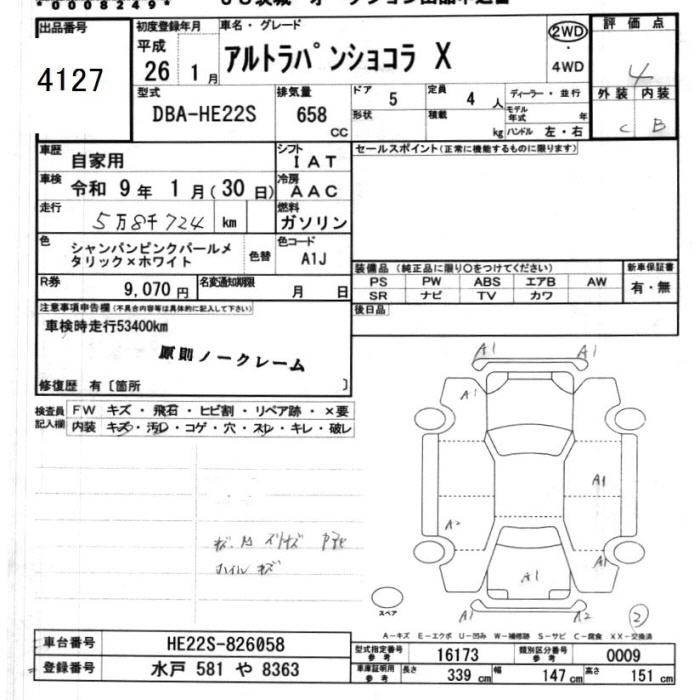 *0008249*
出品番号
4127
初度登録年月
平成
26 1月
車名・グレード
アルトラパンショコラ X
2WD
・
4WD
評価点
4
外装 内装
C B
型式
DBA-HE22S
排気量
658
CC
ドア
5
形状
定員
4人
積載
kg
ディーラー・並行
モデル年式 年
ハンドル 左・右
車歴
自家用
シフト
IAT
セールスポイント(正常に機能するものに限ります)
車検
令和 9年 1月(30日)
冷房
AAC
走行
5万8千724 km
燃料
ガソリン
色
シャンパンピンクパールメ
タリック×ホワイト
色替
色コード
A1J
装備品(純正品に限り○をつけてください)
PS PW ABS エアB AW
SR ナビ TV カワ
新車保証書
有・無
R券
9,070円
名変通知期限
月 日
後日品
注意事項申告欄(不具合内容等は具体的に記入して下さい)
車検時走行53400km
原則ノークレーム
修復歴 有〔箇所 〕
検査員
記入欄
FW キズ・飛石・ヒビ割・リペア跡・×要
内装 キズ・汚レ・コゲ・穴・スレ・キレ・破レ
A1 A1
A1
A1
A2
A1
A1
A1 A2
ホイルキズ
スペア
2
A-キズ E-エクボ U-凹み W-補修跡 S-サビ C-腐食 XX-交換済
車台番号
HE22S-826058
登録番号
水戸 581 や 8363
型式指定番号
参考
16173
類別区分番号
参考
0009
車庫証明用
参考
長さ
339 cm
幅
147 cm
高さ
151 cm